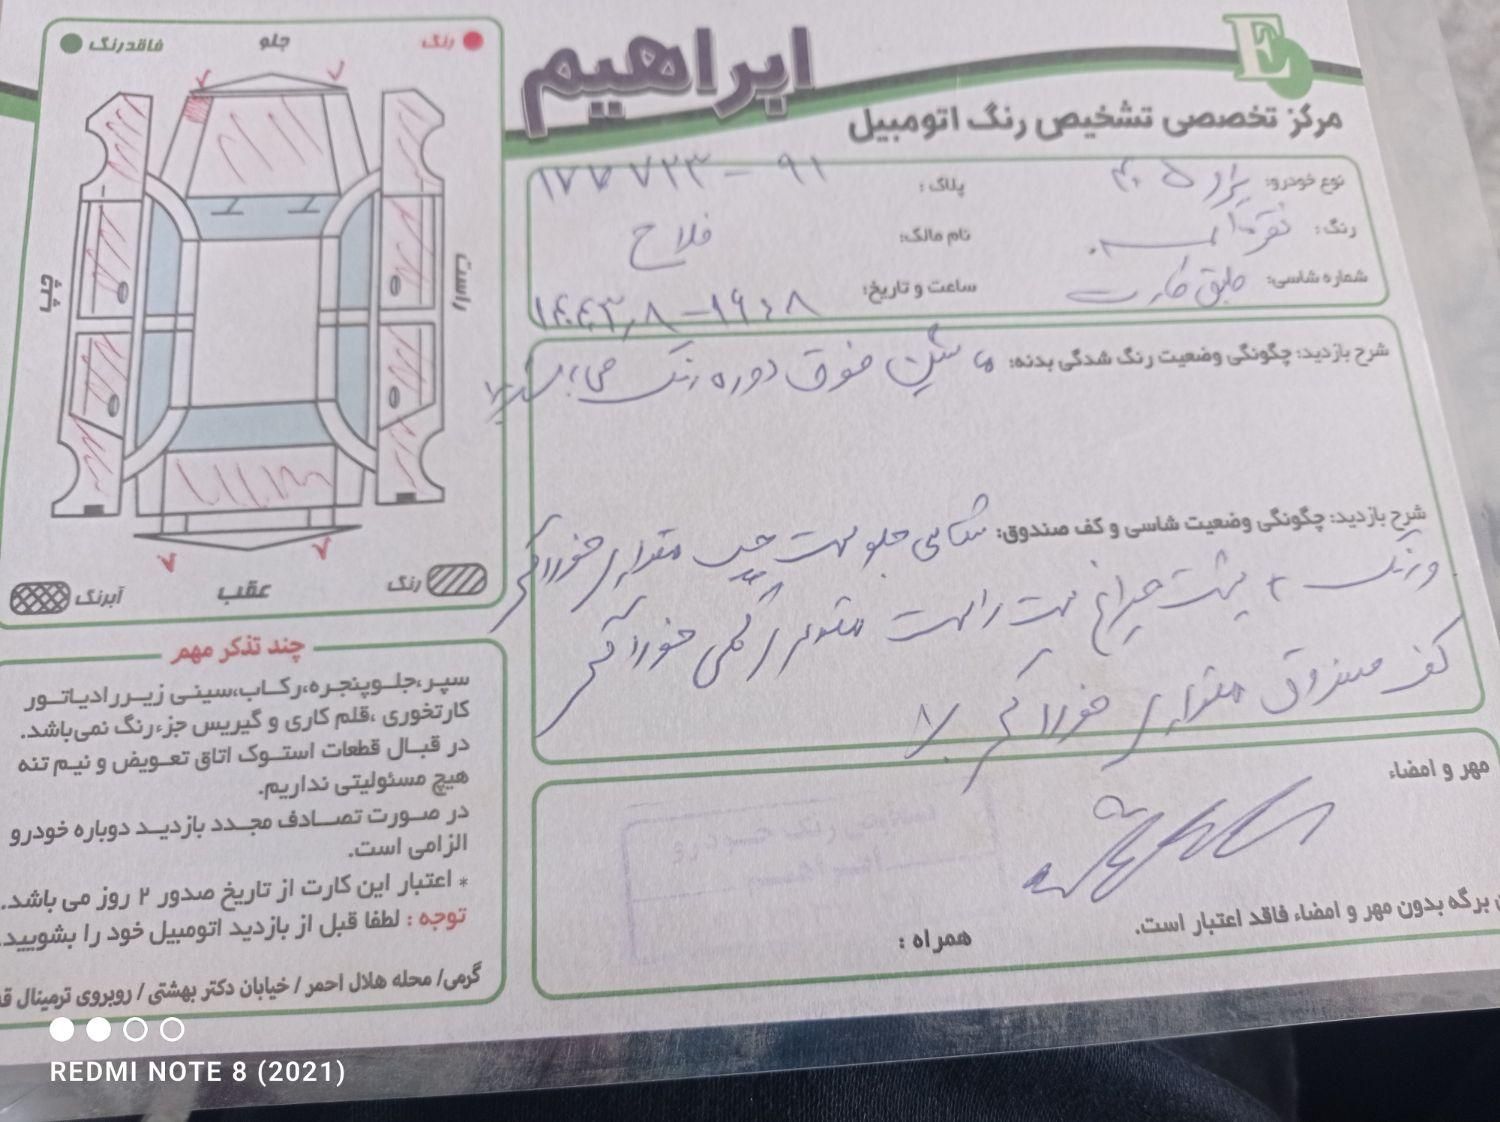 ابراهیم
E
مرکز تخصصی تشخیص رنگ اتومبیل
نوع خودرو: پژو ۴۰۵
پلاک:
رنگ: نقره‌ای
نام مالک: فلاح
شماره شاسی: طبق کارت
ساعت و تاریخ:
شرح بازدید: چگونگی وضعیت رنگ شدگی بدنه: ماشین فوق دوره رنگ می‌باشد
شرح بازدید: چگونگی وضعیت شاسی و کف صندوق: شاسی جلو سمت چپ مقداری خوردگی
و رنگ + پشت چراغ سمت راست مقداری گلی خوردگی
کف صندوق مقداری خوردگی
مهر و امضاء
ن برگه بدون مهر و امضاء فاقد اعتبار است.
همراه :
تشخیص رنگ خودرو
رنگ
جلو
فاقد رنگ
راست
چپ
رنگ
عقب
آبرنگ
چند تذکر مهم
سپر،جلوپنجره،رکاب،سینی زیررادیاتور
کارتخوری ،قلم کاری و گیریس جزء رنگ نمی‌باشد.
در قبال قطعات استوک اتاق تعویض و نیم تنه
هیچ مسئولیتی نداریم.
در صورت تصادف مجدد بازدید دوباره خودرو
الزامی است.
* اعتبار این کارت از تاریخ صدور ۲ روز می باشد.
توجه : لطفا قبل از بازدید اتومبیل خود را بشویید.
گرمی/ محله هلال احمر / خیابان دکتر بهشتی / روبروی ترمینال
REDMI NOTE 8 (2021)